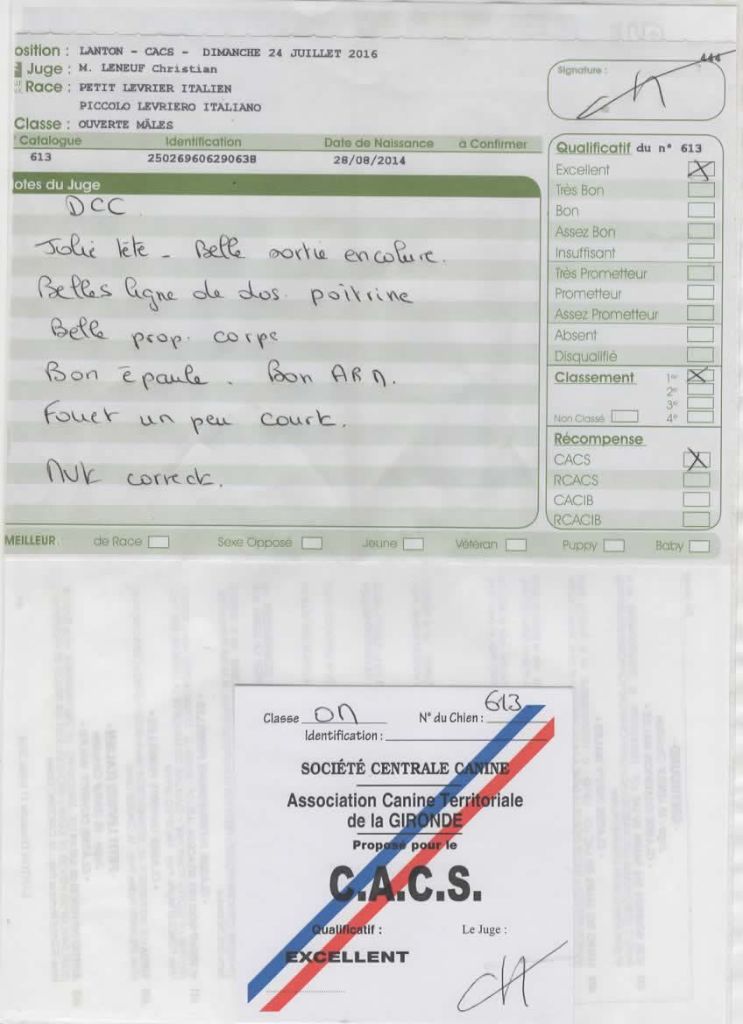 osition : LANTON - CACS - DIMANCHE 24 JUILLET 2016
Juge : M. LENEUF Christian
Race : PETIT LEVRIER ITALIEN
PICCOLO LEVRIERO ITALIANO
Classe : OUVERTE MÂLES
Signature :
Catalogue Identification Date de Naissance à Confirmer
613 250269606290638 28/08/2014
otes du Juge
DCC
Jolie tête - Belle sortie encolure.
Belles ligne de dos. poitrine
Belle prop. corps
Bon épaule. Bon ARR.
Fouet un peu court.
MVK correck.
Qualificatif du n° 613
Excellent X
Très Bon
Bon
Assez Bon
Insuffisant
Très Prometteur
Prometteur
Assez Prometteur
Absent
Disqualifié
Classement 1er X
2e
3e
Non Classé 4e
Récompense
CACS X
RCACS
CACIB
RCACIB
MEILLEUR : de Race Sexe Opposé Jeune Vétéran Puppy Baby
Classe OM N° du Chien : 613
Identification :
SOCIÉTÉ CENTRALE CANINE
Association Canine Territoriale
de la GIRONDE
Proposé pour le
C.A.C.S.
Qualificatif : Le Juge :
EXCELLENT